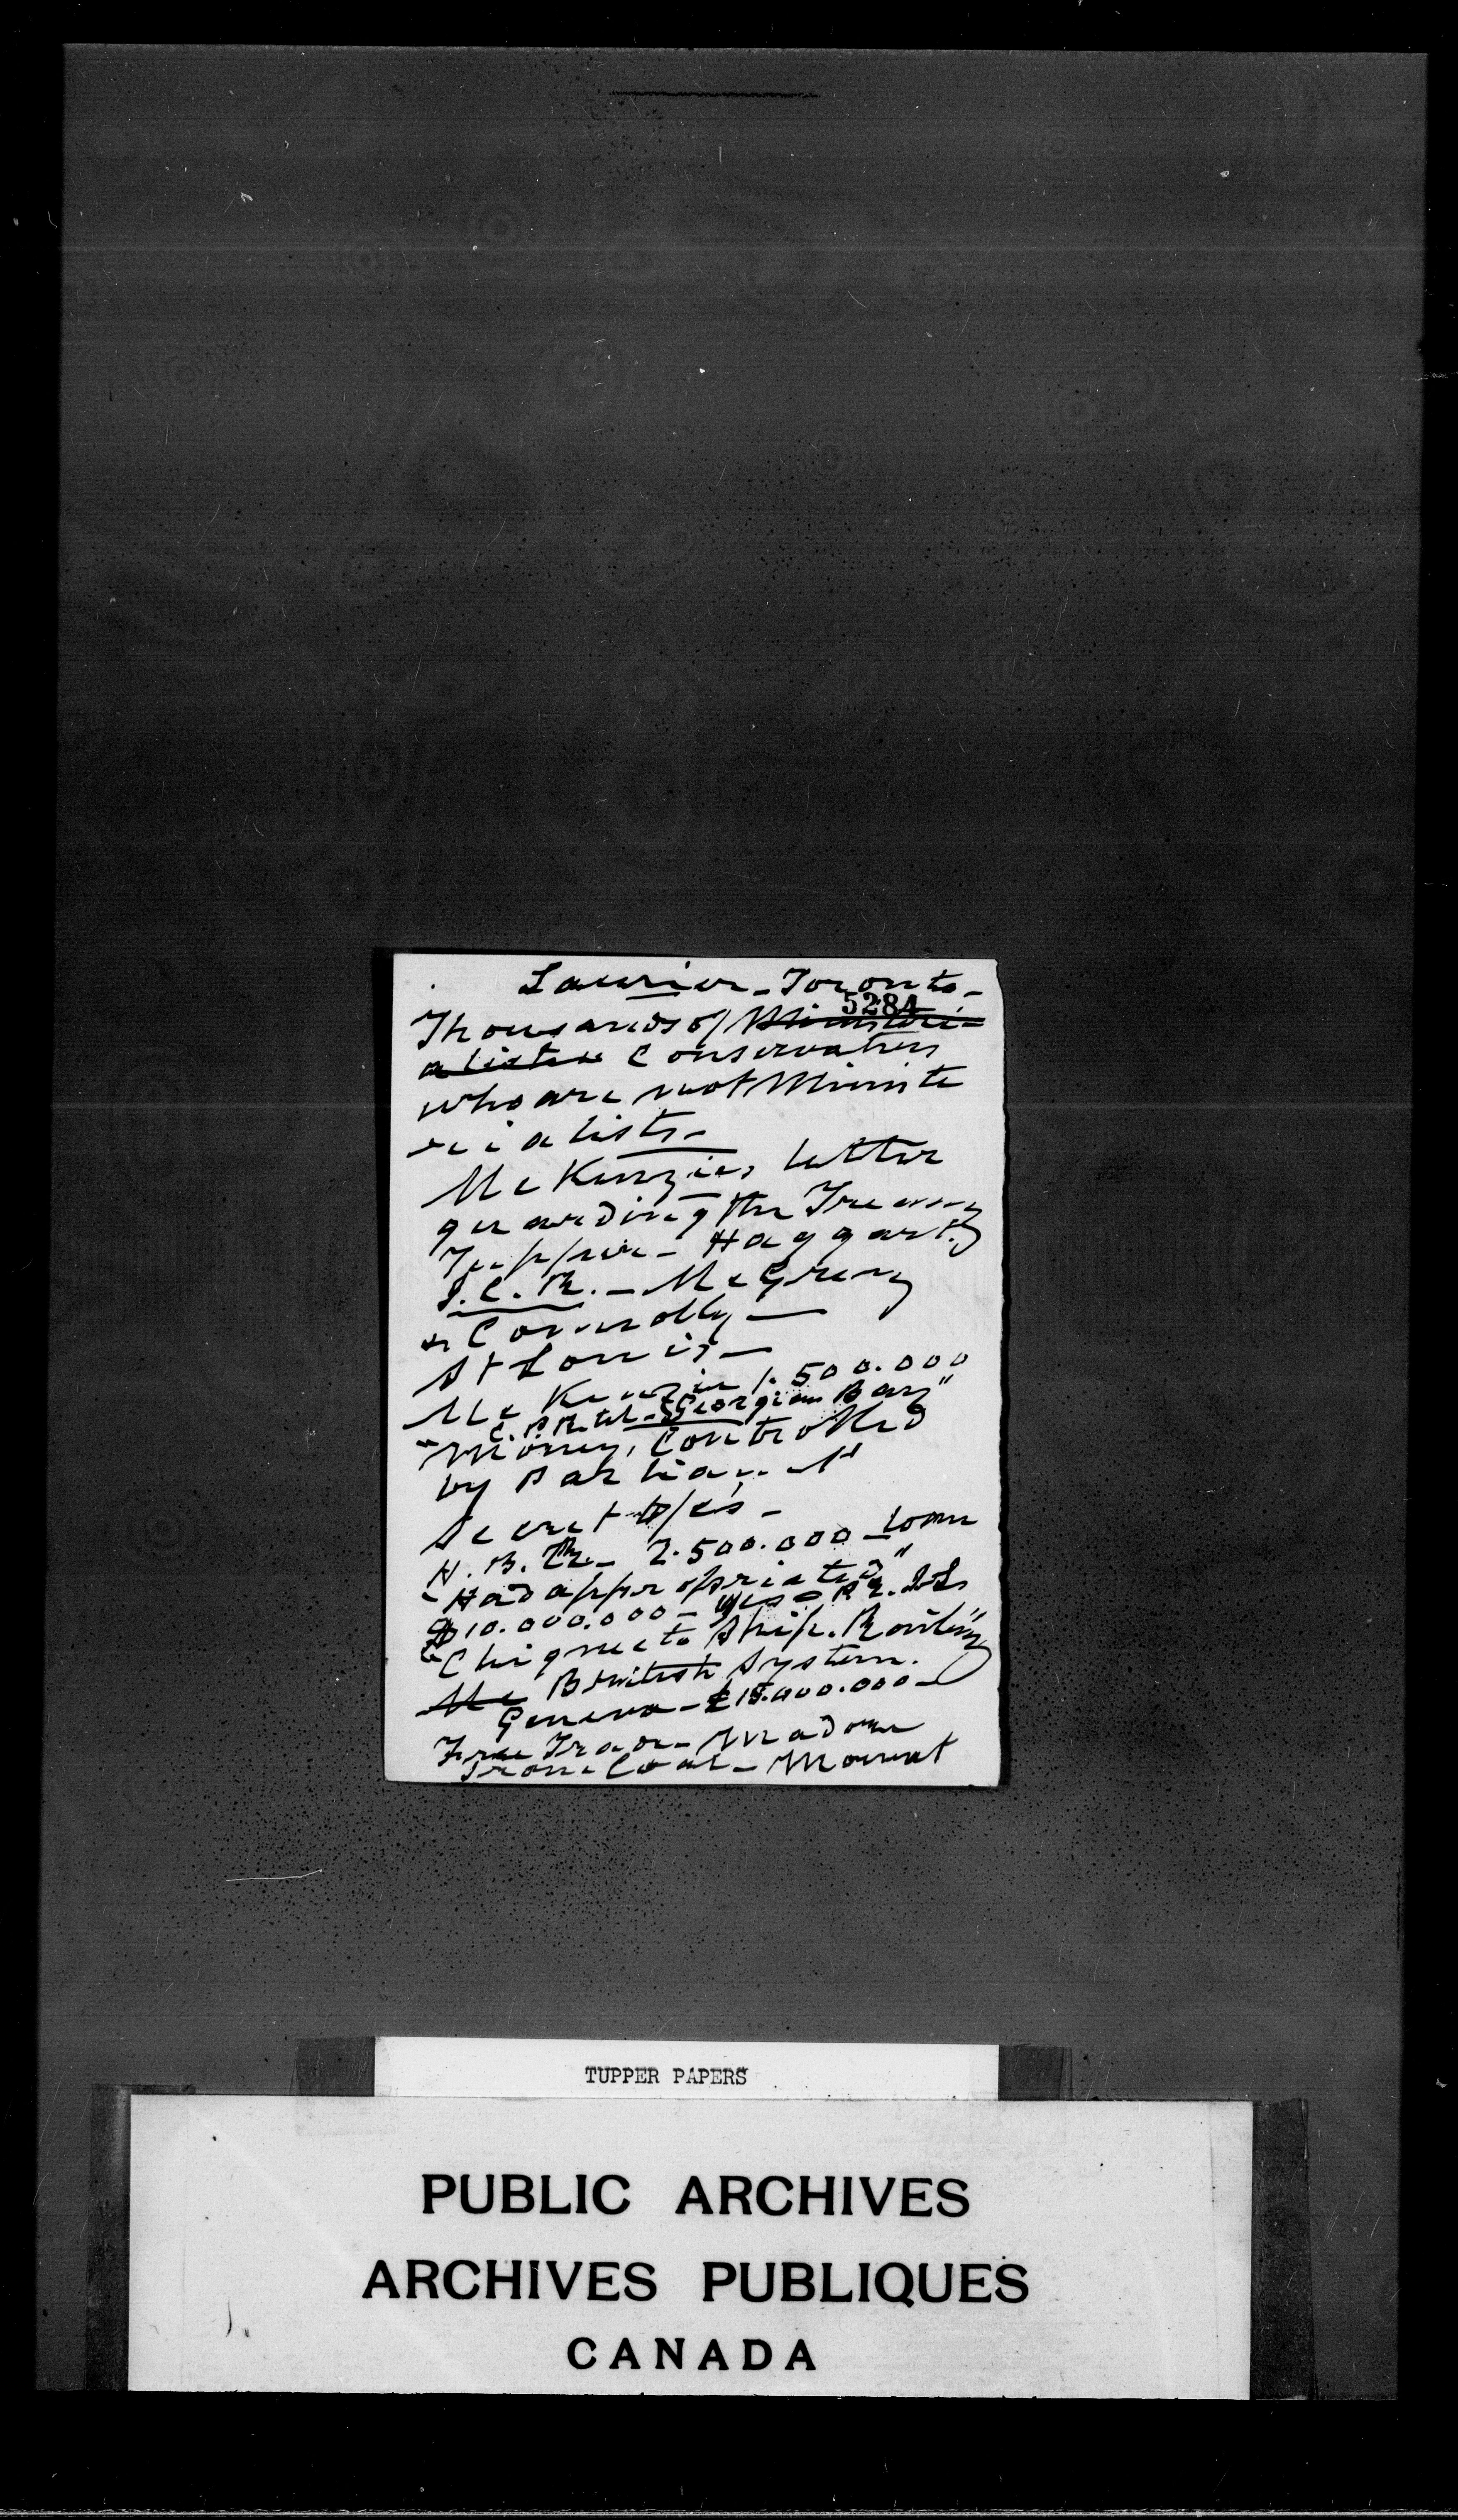 Laurier - Toronto -
5284
Thousands of Ministeri-
alists Conservatives
who are not Ministe
rialists -
McKenzies letter
guarding the Treasury
Tupper - Haggart.
I.C.R. - McGreevy
& Connolly -
St Louis -
McKenzie 1.500.000
C.P.R. tel - Georgian Bay"
"Money, Controlled
by Parliament
Secret
H.B. Ry - 2.500.000 - loan
"Had appropriated"
$10.000.000 -
"Chignecto Ship. Railway"
Mc British System.
Geneva - £15.000.000 -
Free Trade -
Iron & Coal - Mowat
TUPPER PAPERS
PUBLIC ARCHIVES
ARCHIVES PUBLIQUES
CANADA